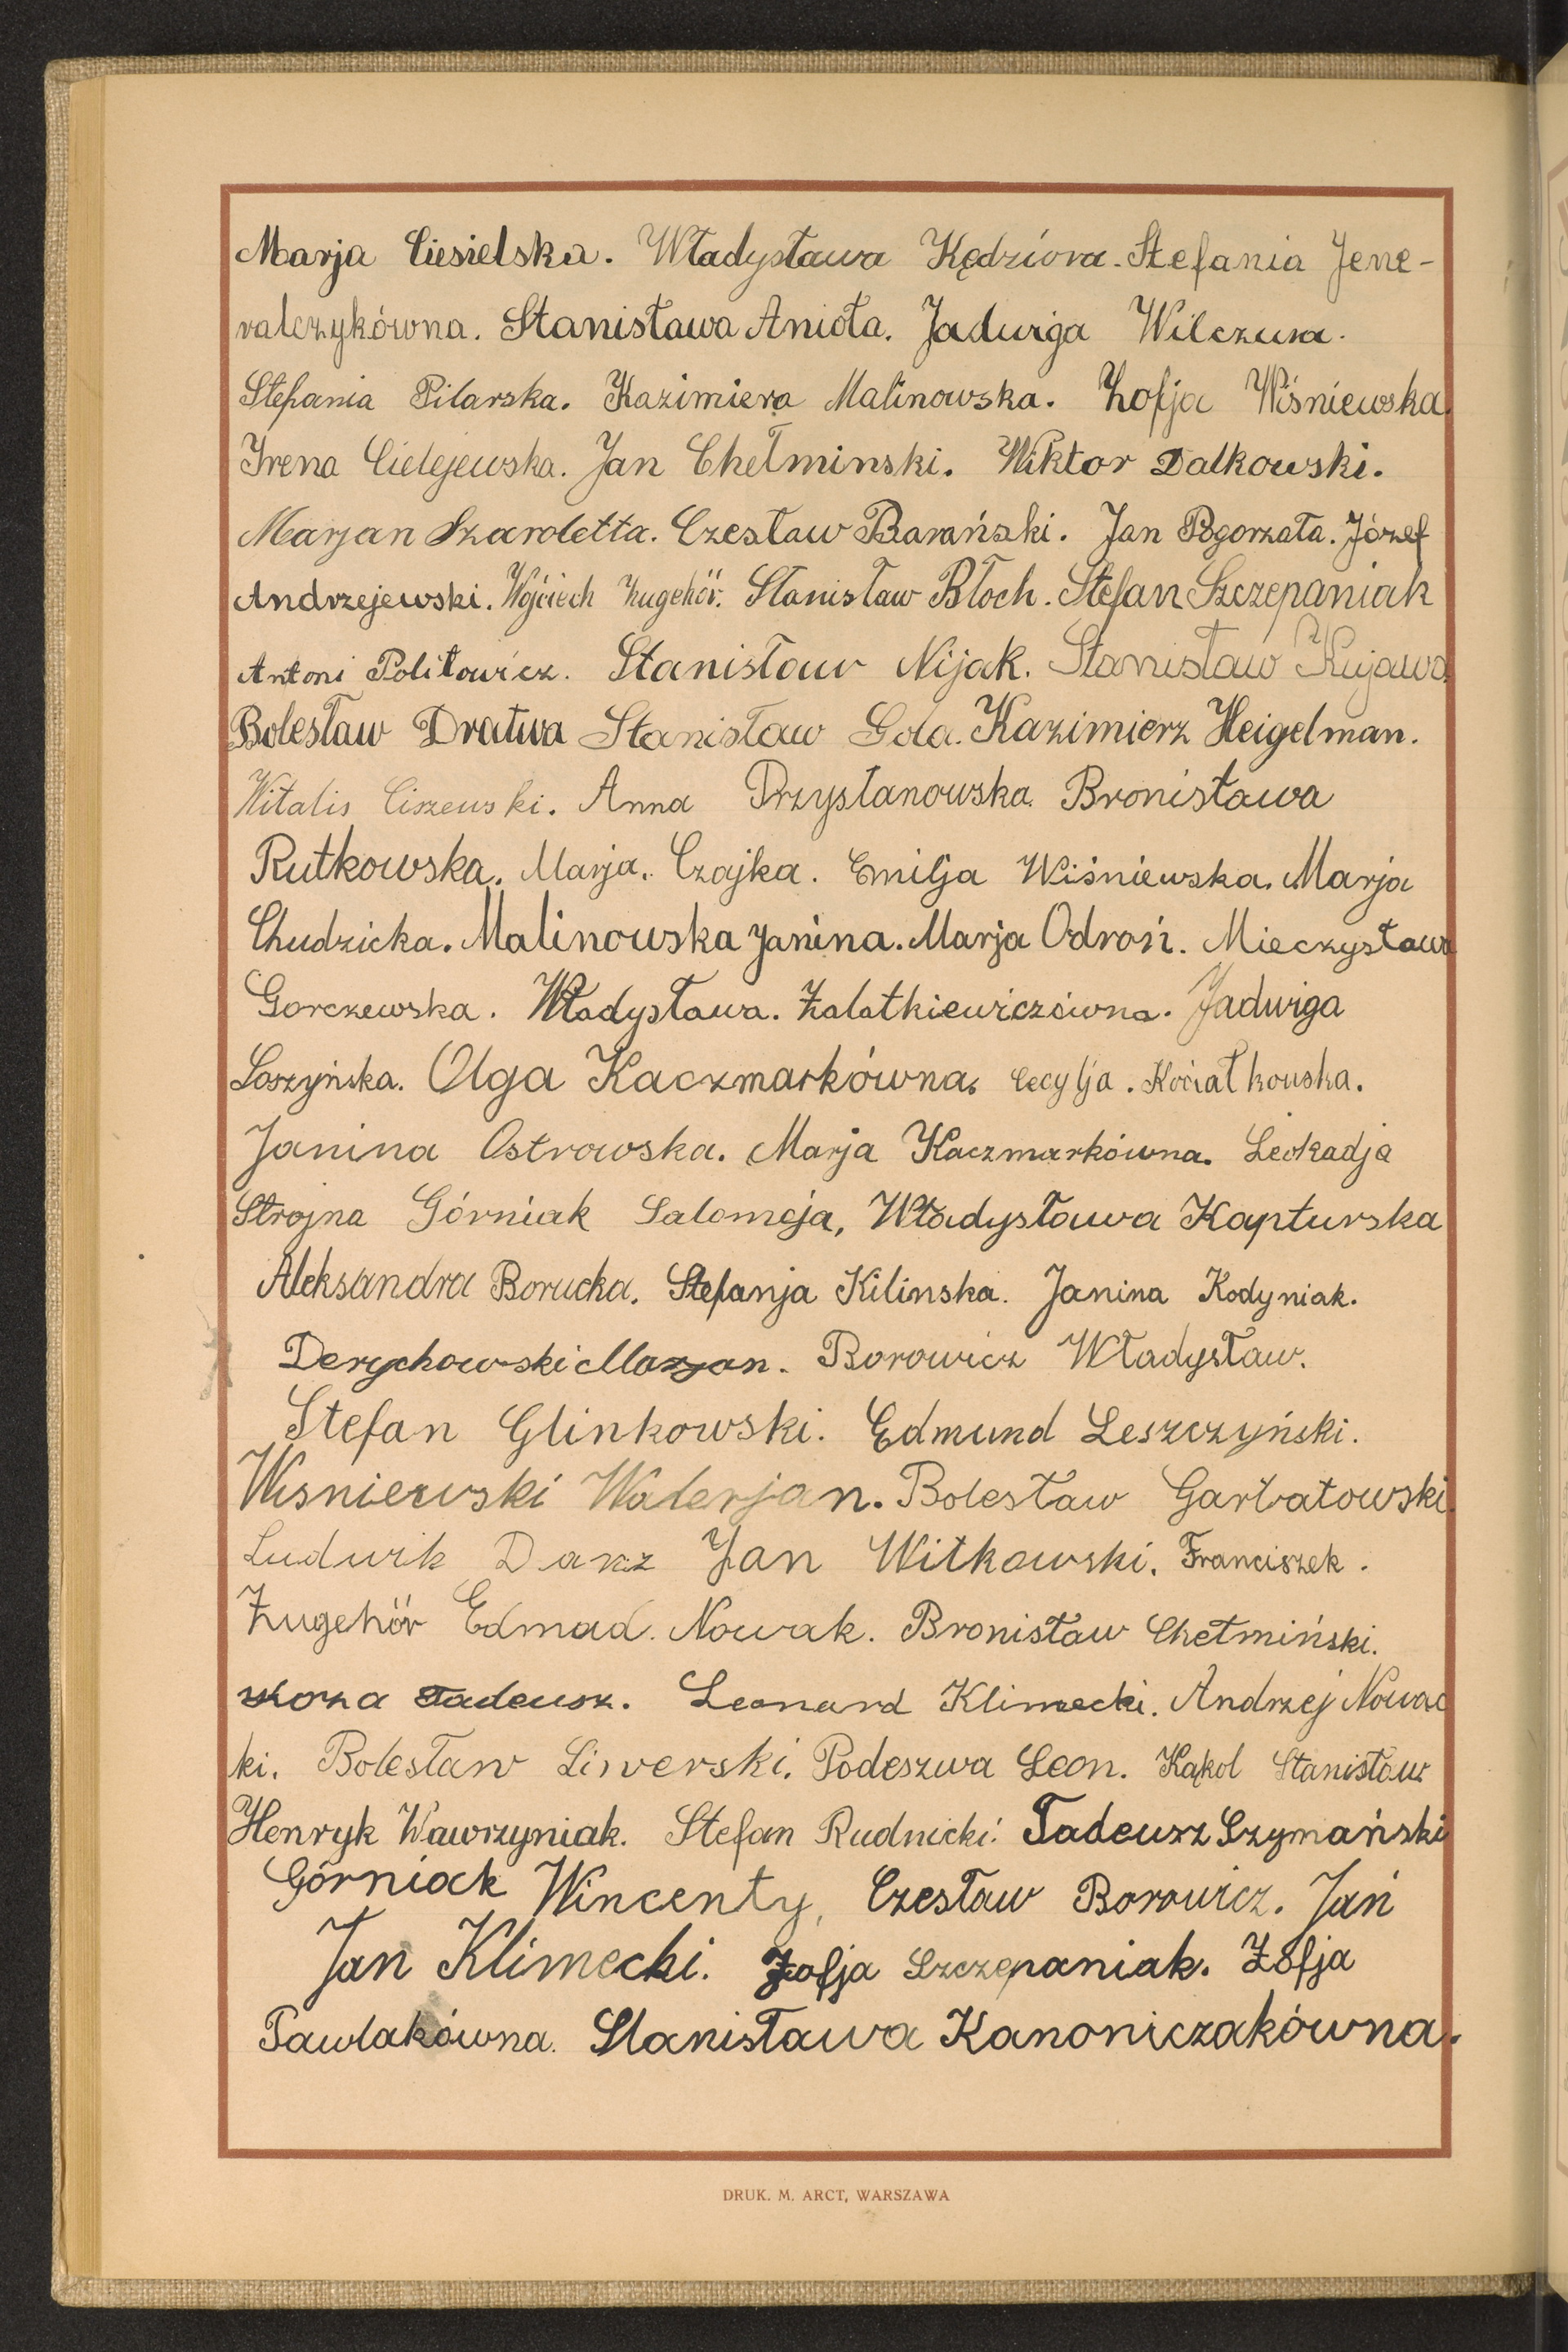 Marja Ciesielska. Władysława Kędziora. Stefania Jene-
ralczykówna. Stanisława Anioła. Jadwiga Wilczura.
Stefania Pilarska. Kazimiera Malinowska. Zofja Wiśniewska.
Irena Cielejewska. Jan Chełminski. Wiktor Dalkowski.
Marjan Szaroletta. Czesław Barański. Jan Pogorzała. Józef
Andrzejewski. Wojciech Zugehör. Stanisław Błoch. Stefan Szczepaniak
Antoni Politowicz. Stanisław Nijak. Stanisław Kujawa.
Bolesław Dratwa Stanisław Gola. Kazimierz Heigelman.
Witalis Ciszewski. Anna Przystanowska. Bronisława
Rutkowska. Marja. Czajka. Emilja Wiśniewska. Marja
Chudzicka. Malinowska Janina. Marja Odroń. Mieczysława
Gorczewska. Władysława. Zalatkiewiczówna. Jadwiga
Loszyńska. Olga Kaczmarkówna. Cecylja. Kociałkowska.
Janina Ostrowska. Marja Kaczmarkówna. Leokadja
Strojna Górniak Salomeja, Władysława Kapturska
Aleksandra Borucka. Stefanja Kilinska. Janina Kodyniak.
Derychowski Marjan. Borowicz Władysław.
Stefan Glinkowski. Edmund Leszczyński.
Wisniewski Walerjan. Bolesław Garbatowski.
Ludwik Danz Jan Witkowski. Franciszek.
Zugehör Edmad. Nowak. Bronisław Chełmiński.
Tadeusz. Leonard Klimecki. Andrzej Nowac
ki. Bolesław Liwerski. Podeszwa Leon. Kąkol Stanisław
Henryk Wawrzyniak. Stefan Rudnicki. Tadeusz Szymański
Górniak Wincenty, Czesław Borowicz. Jan
Jan Klimecki. Zofja Szczepaniak. Zofja
Pawlakówna. Stanisława Kanoniczakówna.
DRUK. M. ARCT, WARSZAWA